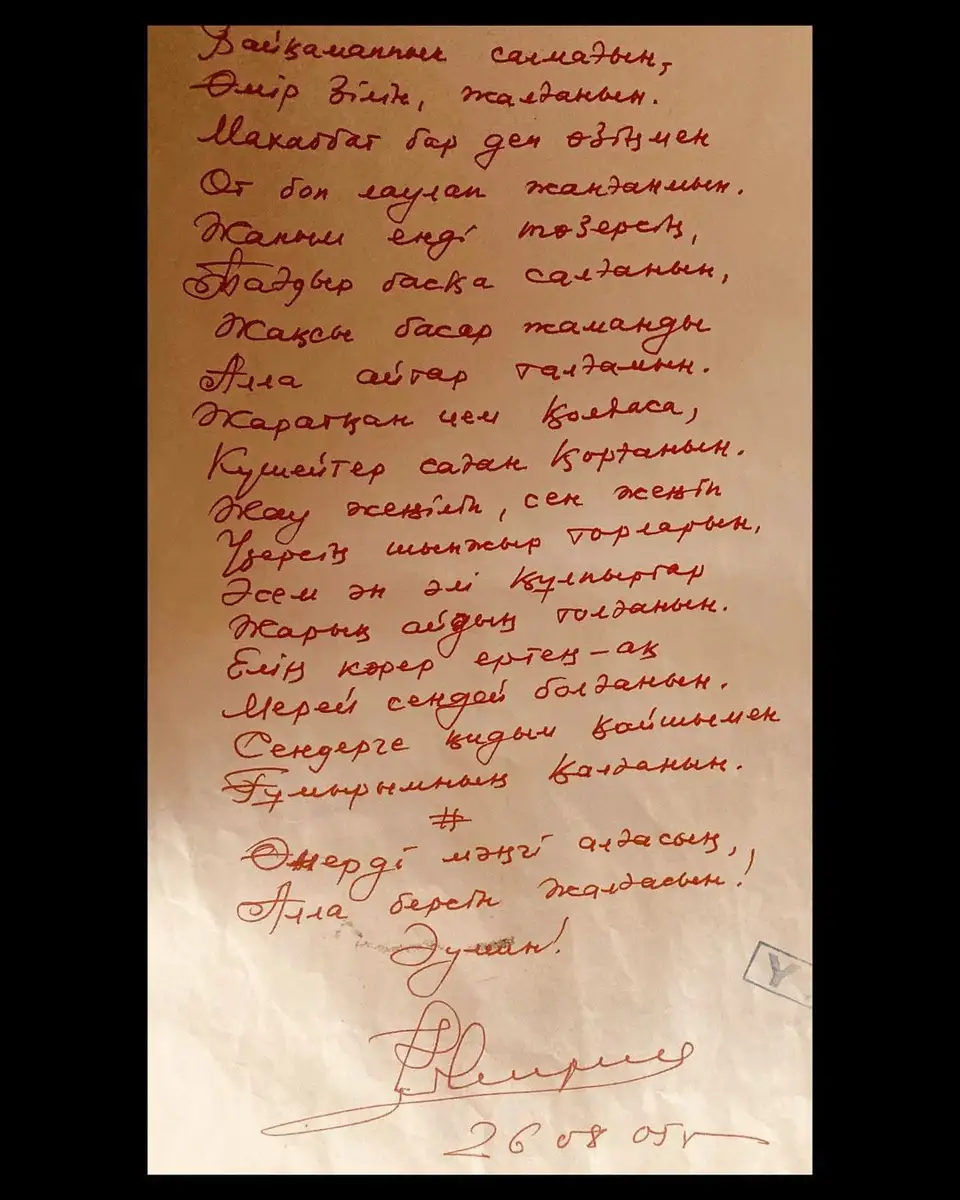 Байқамаппын салмағын,
Өмір зілін, жалғанын.
Махаббат бар деп өзіңмен
От боп лаулап жанғанмын.
Жаным енді төзерсің,
Тағдыр басқа салғанын,
Жақсы басар жаманды
Алла айтар талғамын.
Жаратқан ием қолдаса,
Күшейтер саған қорғанын.
Жау жеңіліп, сен жеңіп
Үзерсің шынжыр торларын,
Әсем ән әлі құлпыртар
Жарық айдың толғанын.
Елің көрер ертең-ақ
Мерей сендей болғанын.
Сендерге қидым қайшымен
Ғұмырымның қалғанын.
#
Өнерді мәңгі алғасың,
Алла берсін жалғасын!
Әумин!
26 08 05г
Y